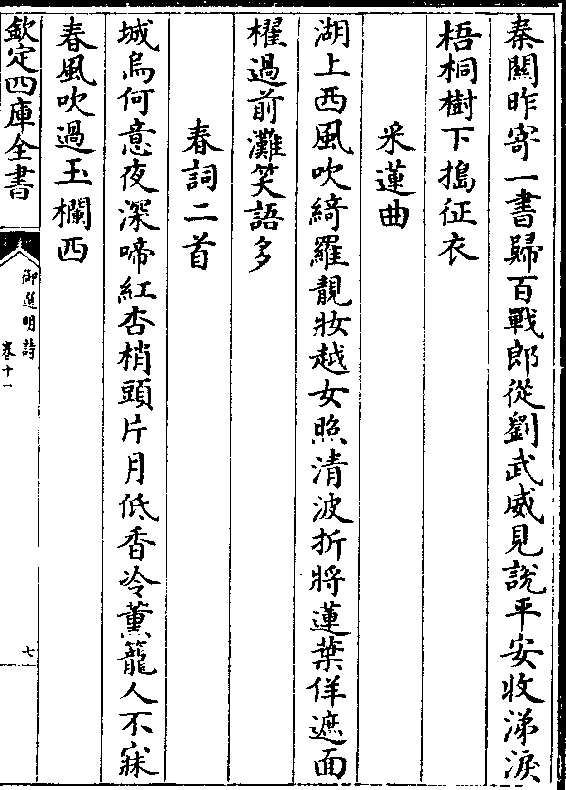 秦闗昨寄一書歸百戰郎從劉武威見說平安收涕淚
梧桐樹下搗征衣
采蓮曲
湖上西風吹綺羅靚妝越女照清波折將蓮葉佯遮面
櫂過前灘笑語多
春詞二首
城烏何意夜深啼紅杏梢頭片月低香冷薰籠人不寐
春風吹過玉欄西
欽定四庫全書
御選明詩
卷十一
七